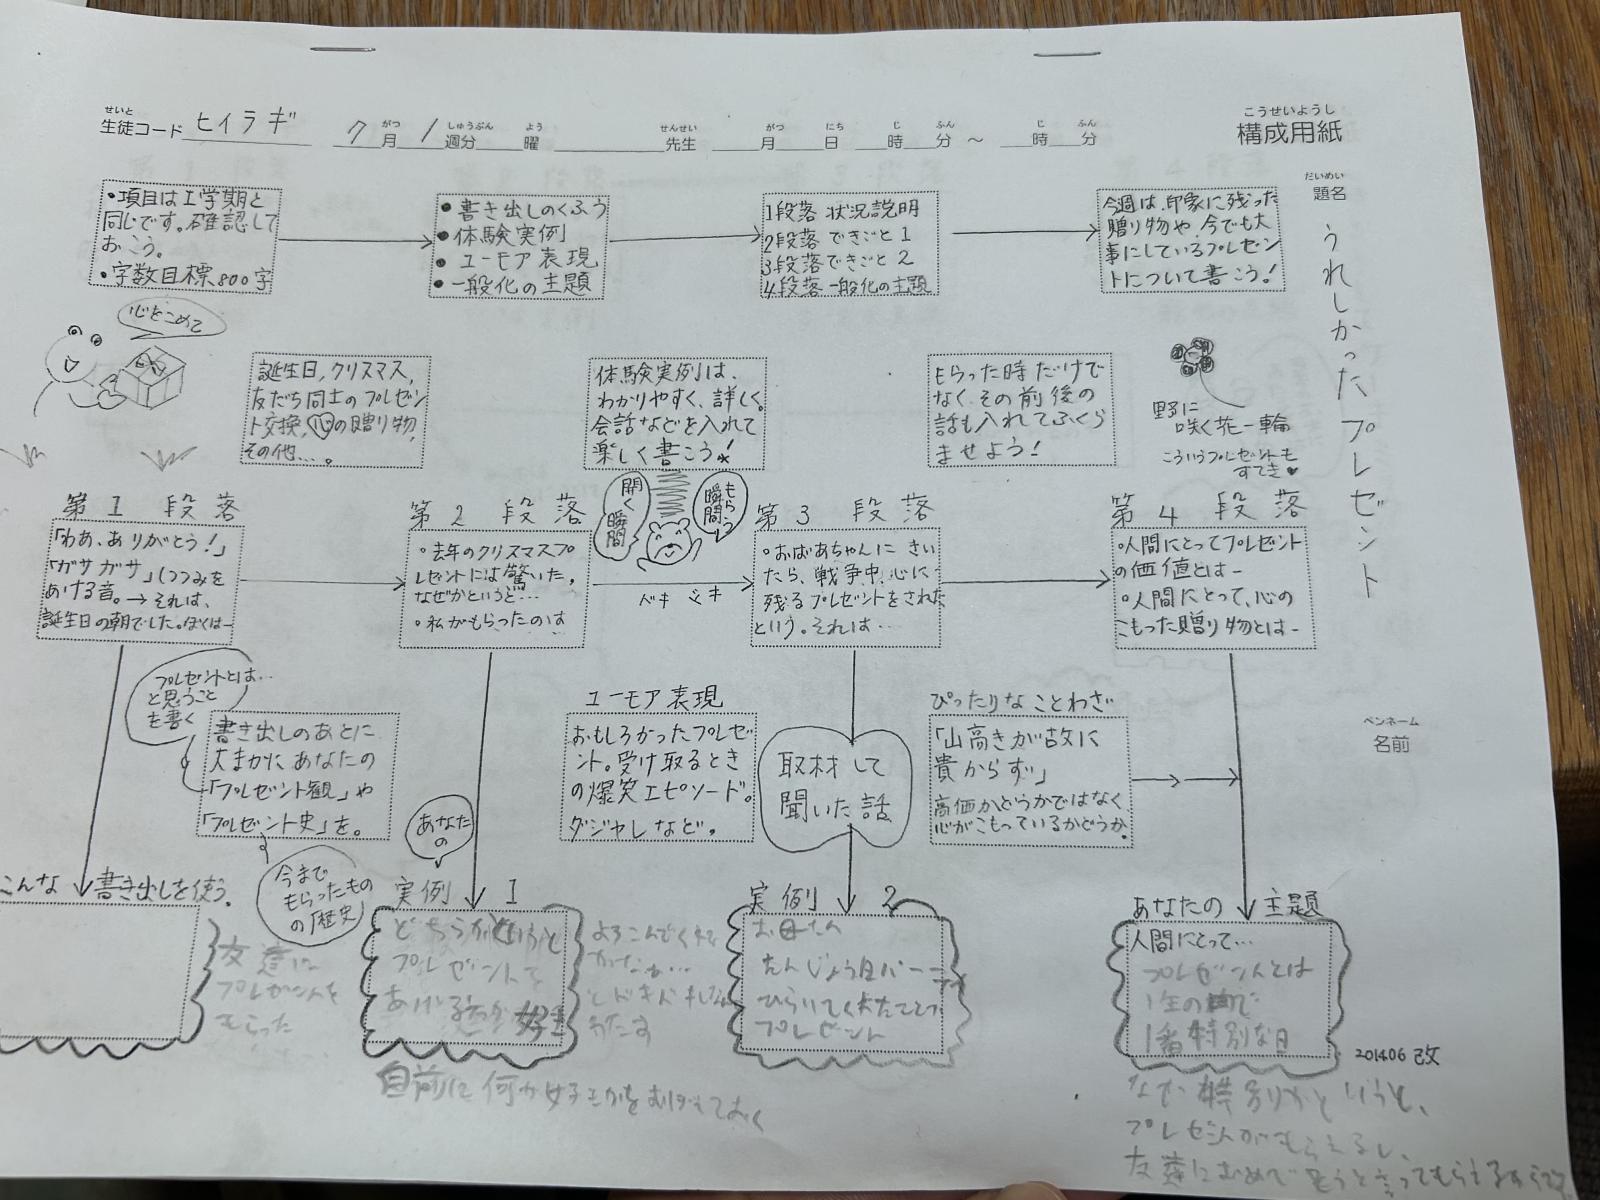 せいと
生徒コード ヒイラギ 7 がつ 月 1 しゅうぶん 週分 よう 曜 せんせい 先生 がつ 月 にち 日 じ 時 ふん 分 ～ じ 時 ふん 分
こうせいようし
構成用紙
だいめい
題名
うれしかったプレゼント
・項目は1学期と
同じです。確認して
おこう。
・字数目標800字
●書き出しのくふう
●体験実例
●ユーモア表現
●一般化の主題
1段落 状況説明
2段落 できごと1
3段落 できごと2
4段落 一般化の主題
今週は、印象に残った
贈り物や、今でも大
事にしているプレゼン
トについて書こう!
心をこめて
誕生日,クリスマス,
友だち同士のプレゼン
ト交換,心の贈り物,
その他…。
体験実例は、
わかりやすく、詳しく。
会話などを入れて
楽しく書こう!
もらった時だけで
なく、その前後の
話も入れてふくら
ませよう!
野に
咲く花一輪
こういうプレゼントも
すてき♥
第1段落
「わあ、ありがとう!」
「ガサガサ」つつみを
あける音。→それは、
誕生日の朝でした。ぼくは―
第2段落
・去年のクリスマスプ
レゼントには驚いた。
なぜかというと…
・私がもらったのは
開く瞬間
もらう瞬間
ドキドキ
第3段落
・おばあちゃんにきい
たら、戦争中、心に
残るプレゼントをされた
という。それは…
第4段落
・人間にとってプレゼント
の価値とは―
・人間にとって、心の
こもった贈り物とは―
プレゼントとは…
と思うこと
を書く
書き出しのあとに
大まかにあなたの
「プレゼント観」や
「プレゼント史」を。
今まで
もらったもの
の「歴史」
ユーモア表現
おもしろかったプレゼ
ント。受け取るとき
の爆笑エピソード。
ダジャレなど。
取材して
聞いた話
ぴったりなことわざ
「山高きが故に
貴からず」
高価かどうかではなく
心がこもっているかどうか。
ペンネーム
名前
こんな書き出しを使う。
友達に
プレゼントを
もらった
あなたの
実例 1
どちらかというと
プレゼントを
あげる方が好き
よろこんでくれる
かなぁ…
とドキドキしながら
わたす
実例 2
お母さん
たんじょう日パーティ
ひらいてくれた
プレゼント
あなたの主題
人間にとって…
プレゼントとは
1生の中で
1番特別な日
201406改
なぜ特別かというと、
プレゼントがもらえるし、
友達におめでとうと言ってもらえるから